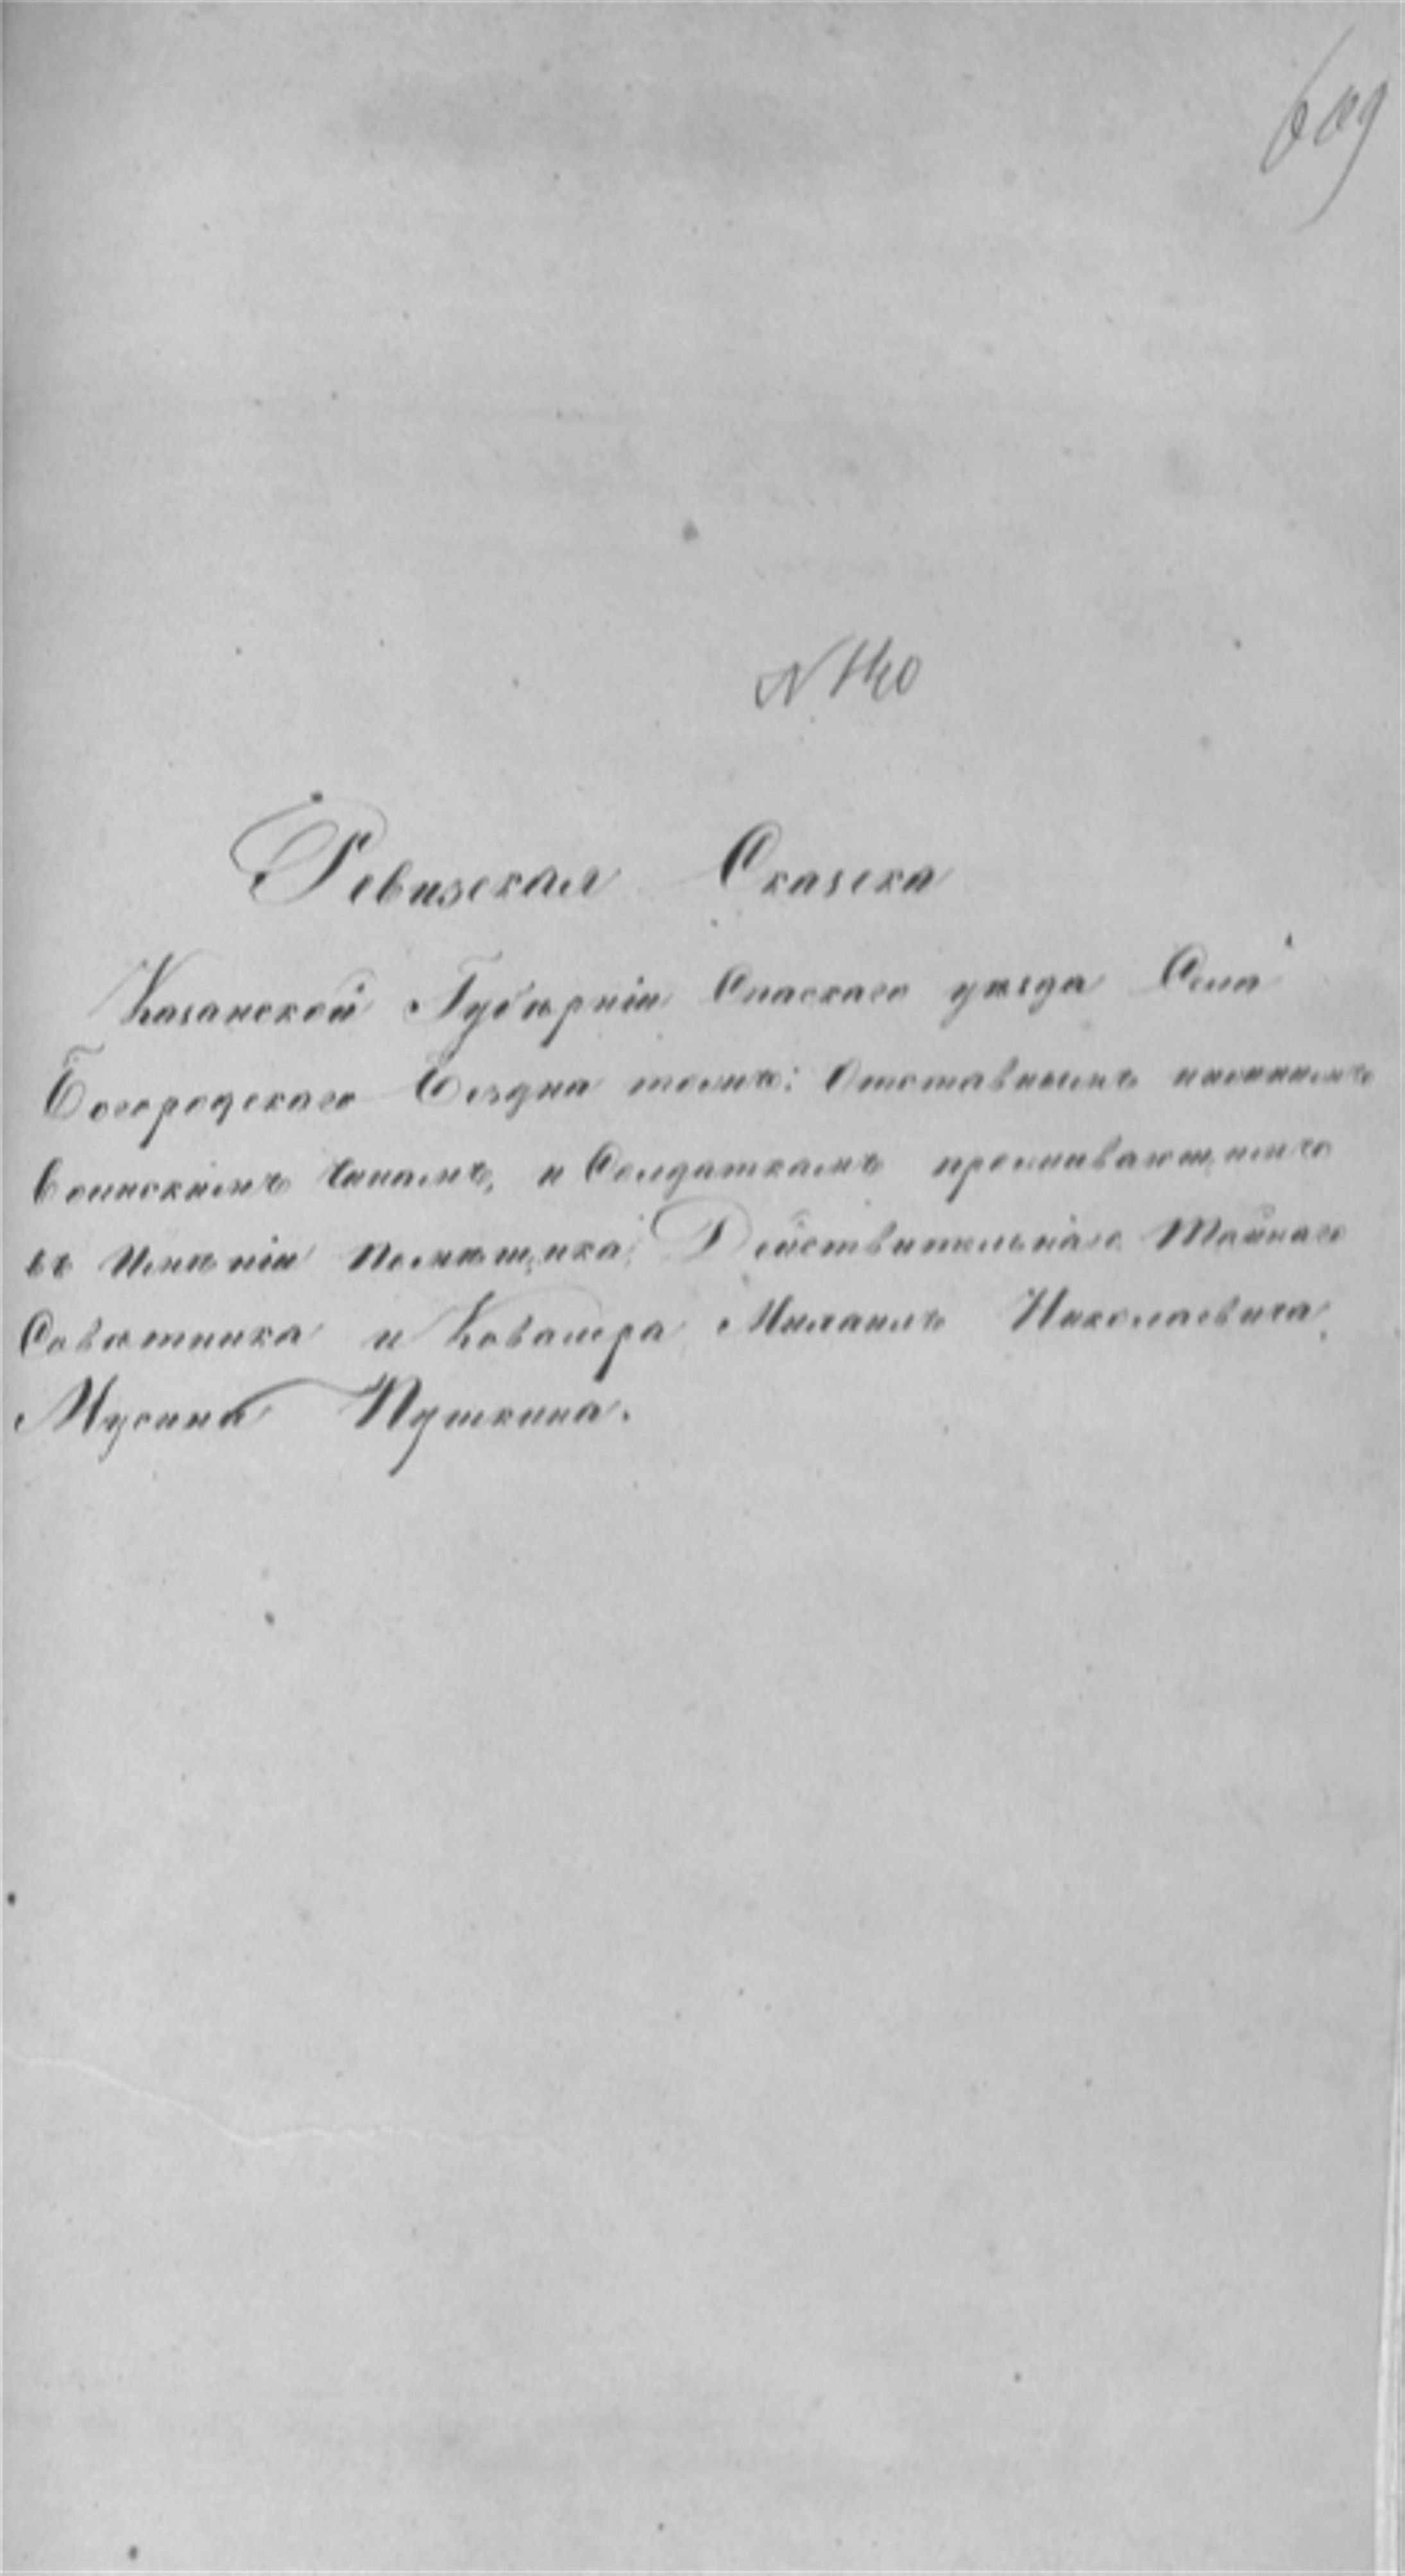 609
N 140
Ревизская Сказска
Казанской Губѣрніи Спаскаго уѣзда Села
Богородскаго Бездна тожъ: Отставнымъ нижнимъ
воинскимъ чинамъ, и Солдаткамъ проживающимъ
въ Имѣніи Помѣщика, Действительнаго Тайнаго
Совѣтника и Ковалера Михаилъ Николаевича
Мусина Пушкина.